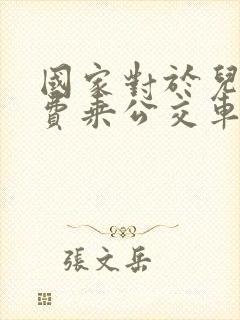 國家對於兒
費乘公交車
張文岳